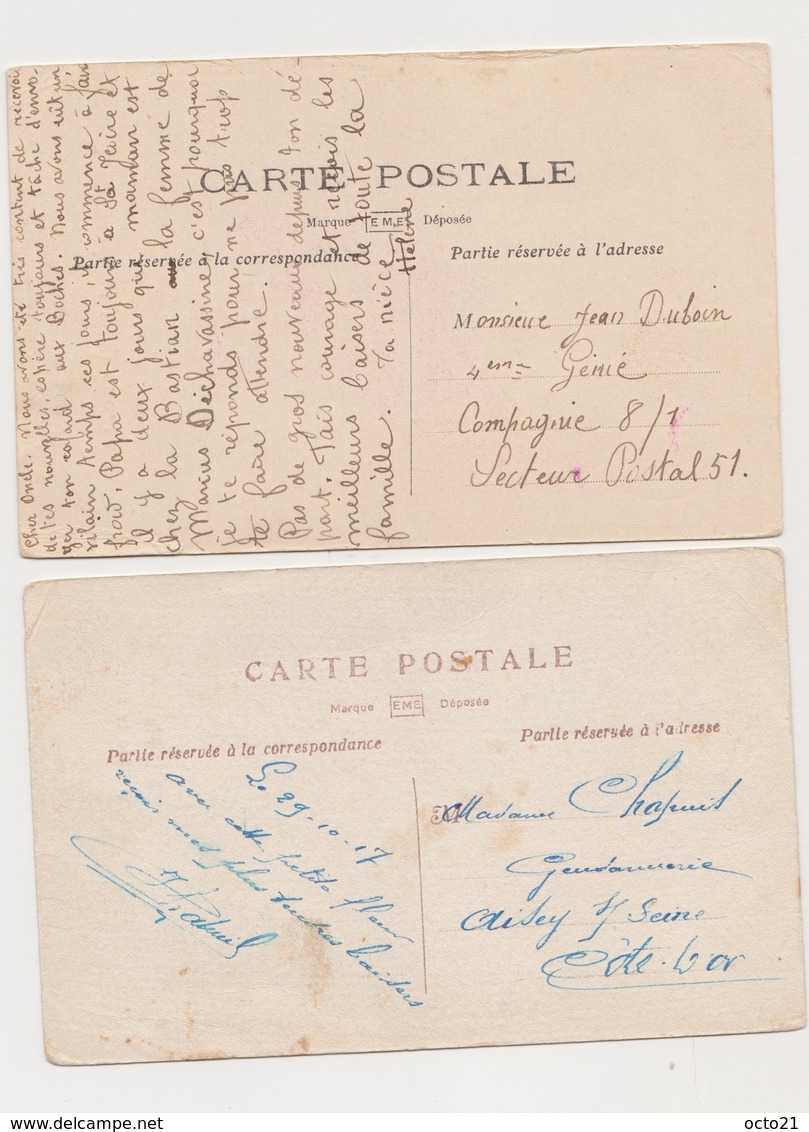 CARTE POSTALE
Marque EME Déposée
Partie réservée à la correspondance
Partie réservée à l'adresse
Cher Oncle. Nous avons été très content de recevoi
de tes nouvelles, espère toujours et tâche d'envo-
yer ton cafard aux Boches. Nous avons eut un
vilain temps ces jours, il commence à fair
froid, Papa est toujours à St et
il y a deux jours que maman est
chez la Bastian la femme de
Marius Déchavassine, c'est pourquoi
je te réponds pour ne pas trop
te faire attendre.
Pas de gros nouveau depuis ton dé-
part. Fais courage et reçois les
meilleurs baisers de toute la
famille. Ta nièce
Hélène
Monsieur Jean Duboin
4eme Génie
Compagnie 8/1
Secteur Postal 51.
CARTE POSTALE
Marque EME Déposée
Partie réservée à la correspondance
Partie réservée à l'adresse
Le 29-10-17
avec cette petite fleur
reçois mes plus tendres baisers
Madame Chapuis
Gendarmerie
Aisey s/ Seine
Côte-d'or
octo21